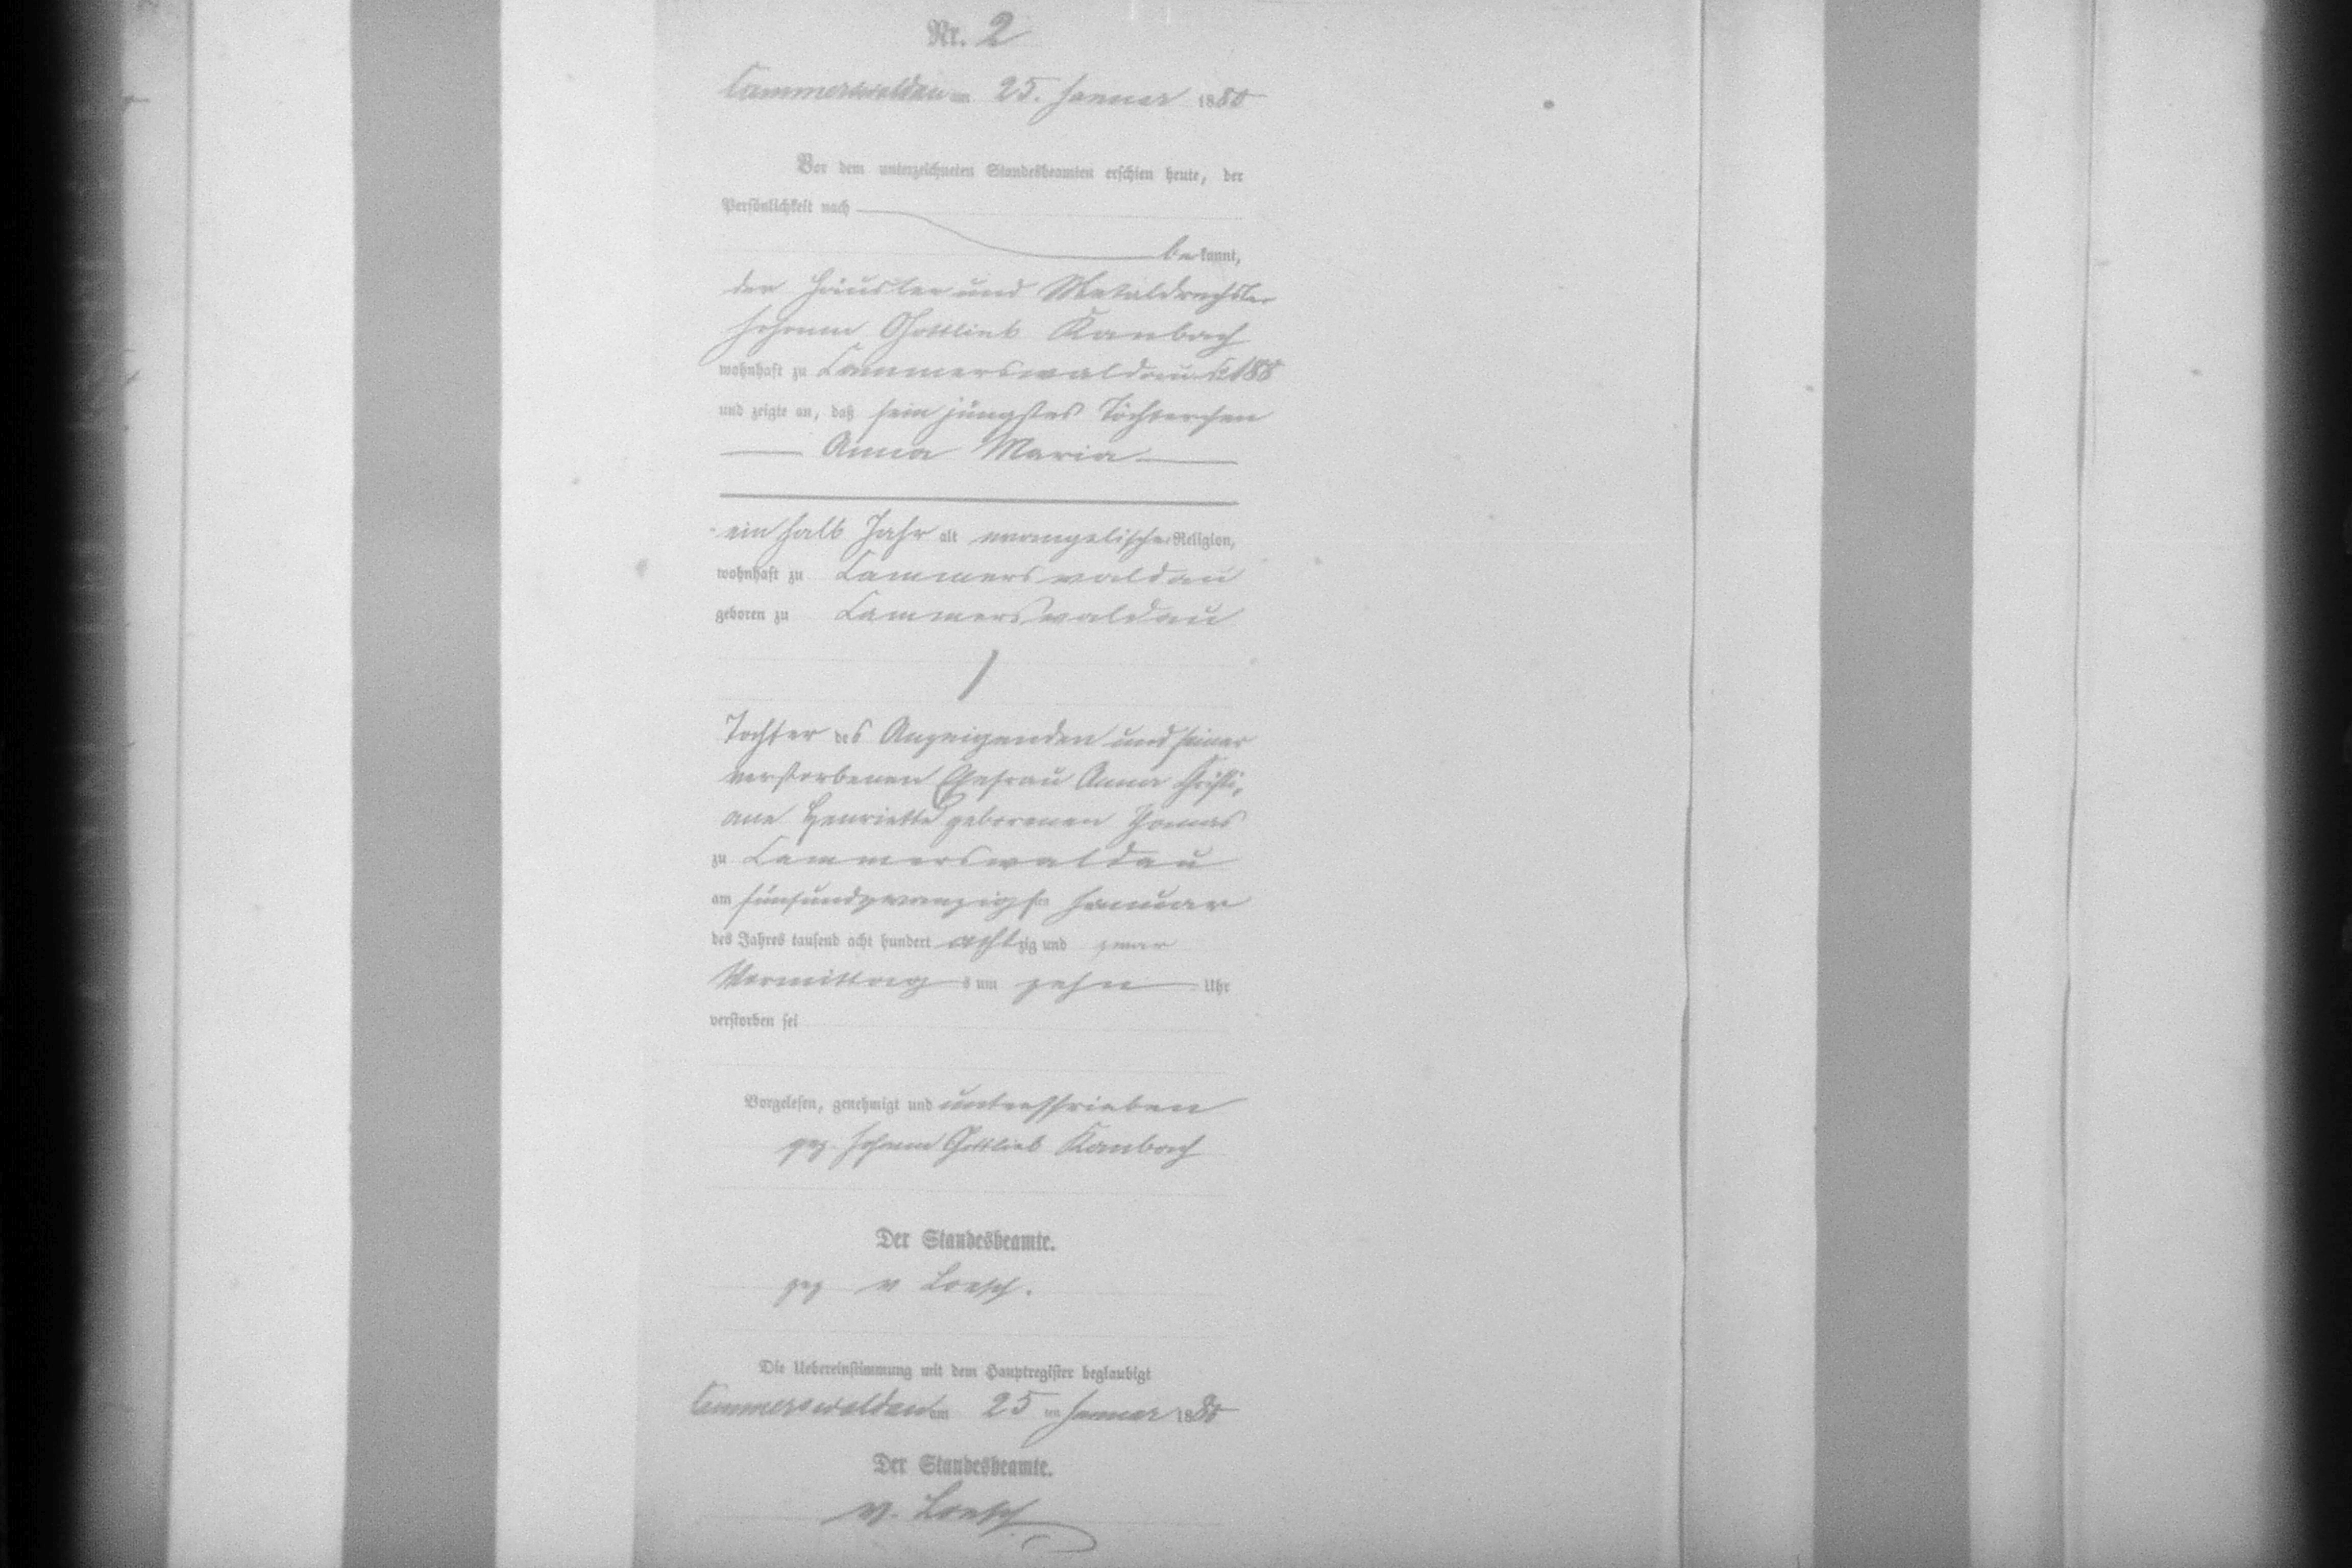 Nr. 2
Cammerswaldau am 25. Januar 1880
Vor dem unterzeichneten Standesbeamten erschien heute, der
Persönlichkeit nach
bekannt,
der Häusler und Metaldrechsler
Johann Gottlieb Kambach
wohnhaft zu Cammerswaldau 188
und zeigte an, daß sein jüngstes Töchterchen
Anna Maria
ein halb Jahr alt evangelischer Religion,
wohnhaft zu Cammerswaldau
geboren zu Cammerswaldau
Tochter des Anzeigenden und seiner
verstorbenen Ehefrau Anna Christi,
ane Henriette geborenen Thomas
zu Cammerswaldau
am fünfundzwanzigsten Januar
des Jahres tausend acht hundert achtzig und zwar
Vormittags um zehn Uhr
verstorben sei
Vorgelesen, genehmigt und unterschrieben
gez. Johann Gottlieb Kambach
Der Standesbeamte.
gez v Loesch.
Die Uebereinstimmung mit dem Hauptregister beglaubigt
Cammerswaldau am 25 ten Januar 1880
Der Standesbeamte.
v. Loesch